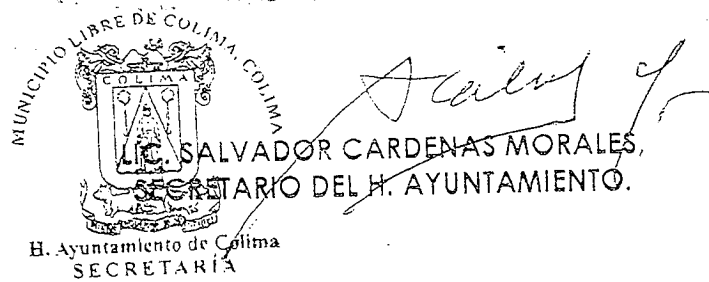 MUNICIPIO LIBRE DE COLIMA, COLIMA
COLIMA
LIC. SALVADOR CARDENAS MORALES,
SECRETARIO DEL H. AYUNTAMIENTO.
H. Ayuntamiento de Colima
SECRETARÍA